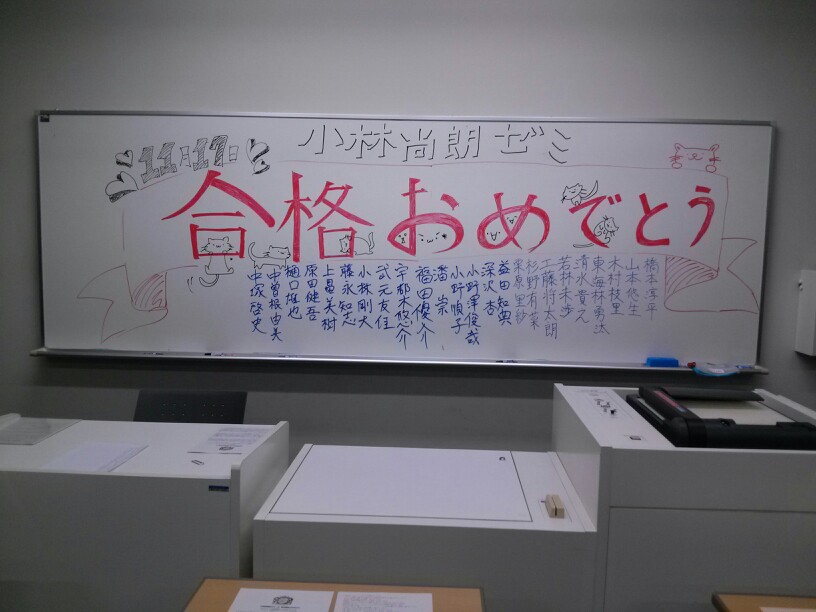 小林尚朗ゼミ
11月17日
合格おめでとう
橋本淳平
山本悠生
木村枝里
東海林勇汰
清水貴之
若林未歩
工藤将太朗
杉野有菜
栗原里紗
益田知典
深沢杏
小野澤俊哉
小野順子
潘崇
福田優介
宇都木悠介
武元友佳
小林剛大
藤永知志
上畠美樹
原田健吾
樋口雄也
中曽根由美
中塚啓史